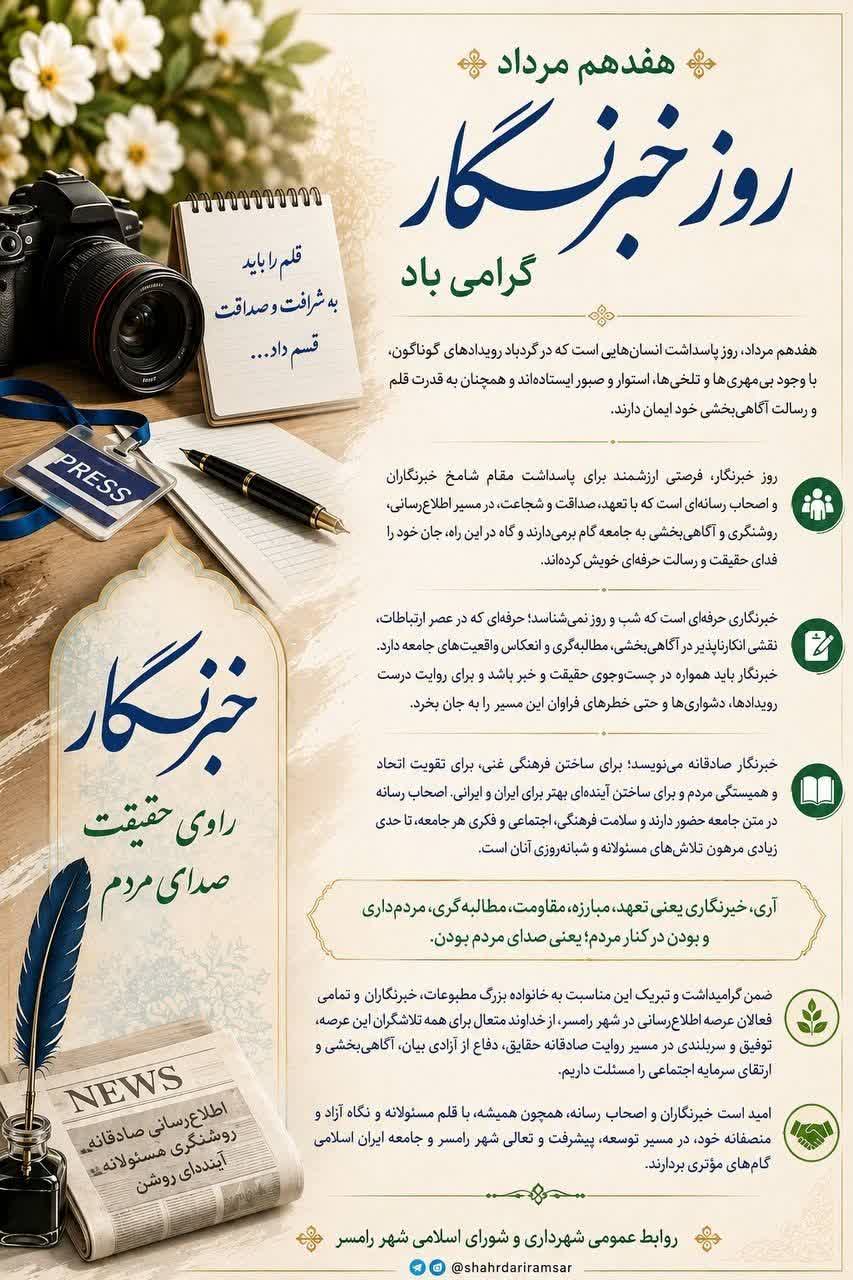 هفدهم مرداد
روز خبرنگار
گرامی باد
قلم را باید
به شرافت و صداقت
قسم داد...
هفدهم مرداد، روز پاسداشت انسان‌هایی است که در گردباد رویدادهای گوناگون،
با وجود بی‌مهری‌ها و تلخی‌ها، استوار و صبور ایستاده‌اند و همچنان به قدرت قلم
و رسالت آگاهی‌بخشی خود ایمان دارند.
PRESS
روز خبرنگار، فرصتی ارزشمند برای پاسداشت مقام شامخ خبرنگاران
و اصحاب رسانه‌ای است که با تعهد، صداقت و شجاعت، در مسیر اطلاع‌رسانی،
روشنگری و آگاهی‌بخشی به جامعه گام برمی‌دارند و گاه در این راه، جان خود را
فدای حقیقت و رسالت حرفه‌ای خویش کرده‌اند.
خبرنگاری حرفه‌ای است که شب و روز نمی‌شناسد؛ حرفه‌ای که در عصر ارتباطات،
نقشی انکارناپذیر در آگاهی‌بخشی، مطالبه‌گری و انعکاس واقعیت‌های جامعه دارد.
خبرنگار باید همواره در جست‌وجوی حقیقت و خبر باشد و برای روایت درست
رویدادها، دشواری‌ها و حتی خطرهای فراوان این مسیر را به جان بخرد.
خبرنگار صادقانه می‌نویسد؛ برای ساختن فرهنگی غنی، برای تقویت اتحاد
و همبستگی مردم و برای ساختن آینده‌ای بهتر برای ایران و ایرانی. اصحاب رسانه
در متن جامعه حضور دارند و سلامت فرهنگی، اجتماعی و فکری هر جامعه، تا حدی
زیادی مرهون تلاش‌های مسئولانه و شبانه‌روزی آنان است.
خبرنگار
راوی حقیقت
صدای مردم
آری، خبرنگاری یعنی تعهد، مبارزه، مقاومت، مطالبه‌گری، مردم‌داری
و بودن در کنار مردم؛ یعنی صدای مردم بودن.
ضمن گرامیداشت و تبریک این مناسبت به خانواده بزرگ مطبوعات، خبرنگاران و تمامی
فعالان عرصه اطلاع‌رسانی در شهر رامسر، از خداوند متعال برای همه تلاشگران این عرصه،
توفیق و سربلندی در مسیر روایت صادقانه حقایق، دفاع از آزادی بیان، آگاهی‌بخشی و
ارتقای سرمایه اجتماعی را مسئلت داریم.
امید است خبرنگاران و اصحاب رسانه، همچون همیشه، با قلم مسئولانه و نگاه آزاد و
منصفانه خود، در مسیر توسعه، پیشرفت و تعالی شهر رامسر و جامعه ایران اسلامی
گام‌های مؤثری بردارند.
NEWS
اطلاع‌رسانی صادقانه
روشنگری مسئولانه
آینده‌ای روشن
روابط عمومی شهرداری و شورای اسلامی شهر رامسر
@shahrdariramsar